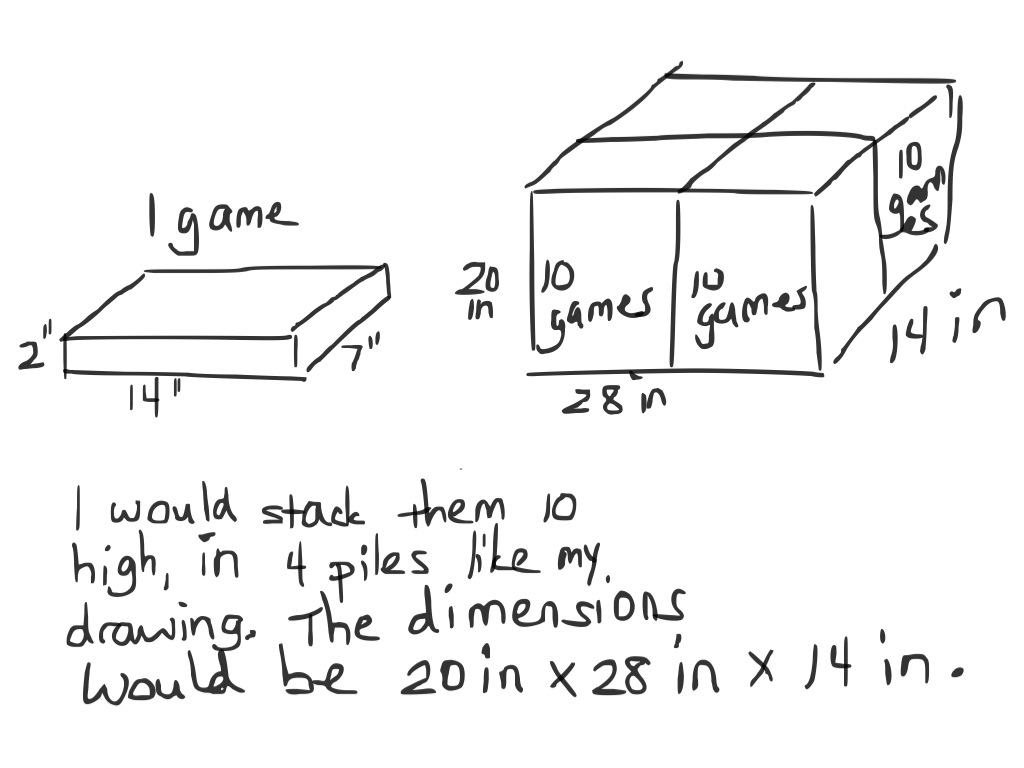 1 game
2"
14"
7"
20
in
10
games
10
games
10
gam
es
28 in
14 in
I would stack them 10
high, in 4 piles like my
drawing. The dimensions
would be 20 in x 28 in x 14 in.